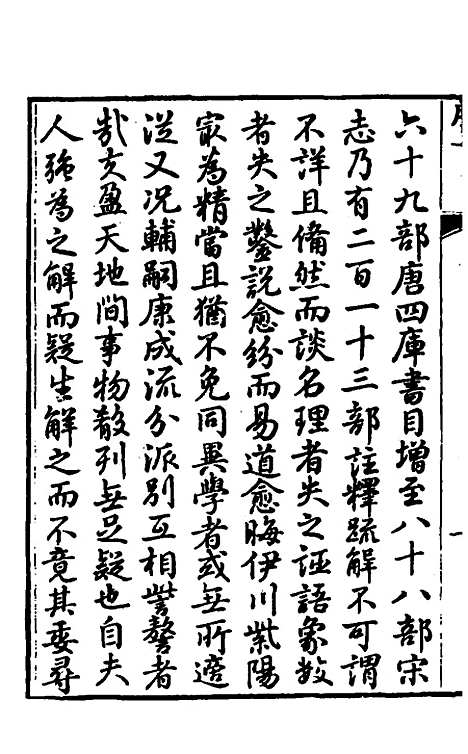 六十九部唐四庫書目增至八十八部宋
志乃有二百一十三部註釋疏解不可謂
不詳且備然而談名理者失之誣語象數
者失之鑿說愈紛而易道愈晦伊川紫陽
㝡為精當且猶不免同異學者或無所適
從又況輔嗣康成流分派別互相訾謷者
哉夫盈天地間事物散列無足疑也自夫
人強為之解而疑生解之而不竟其委尋